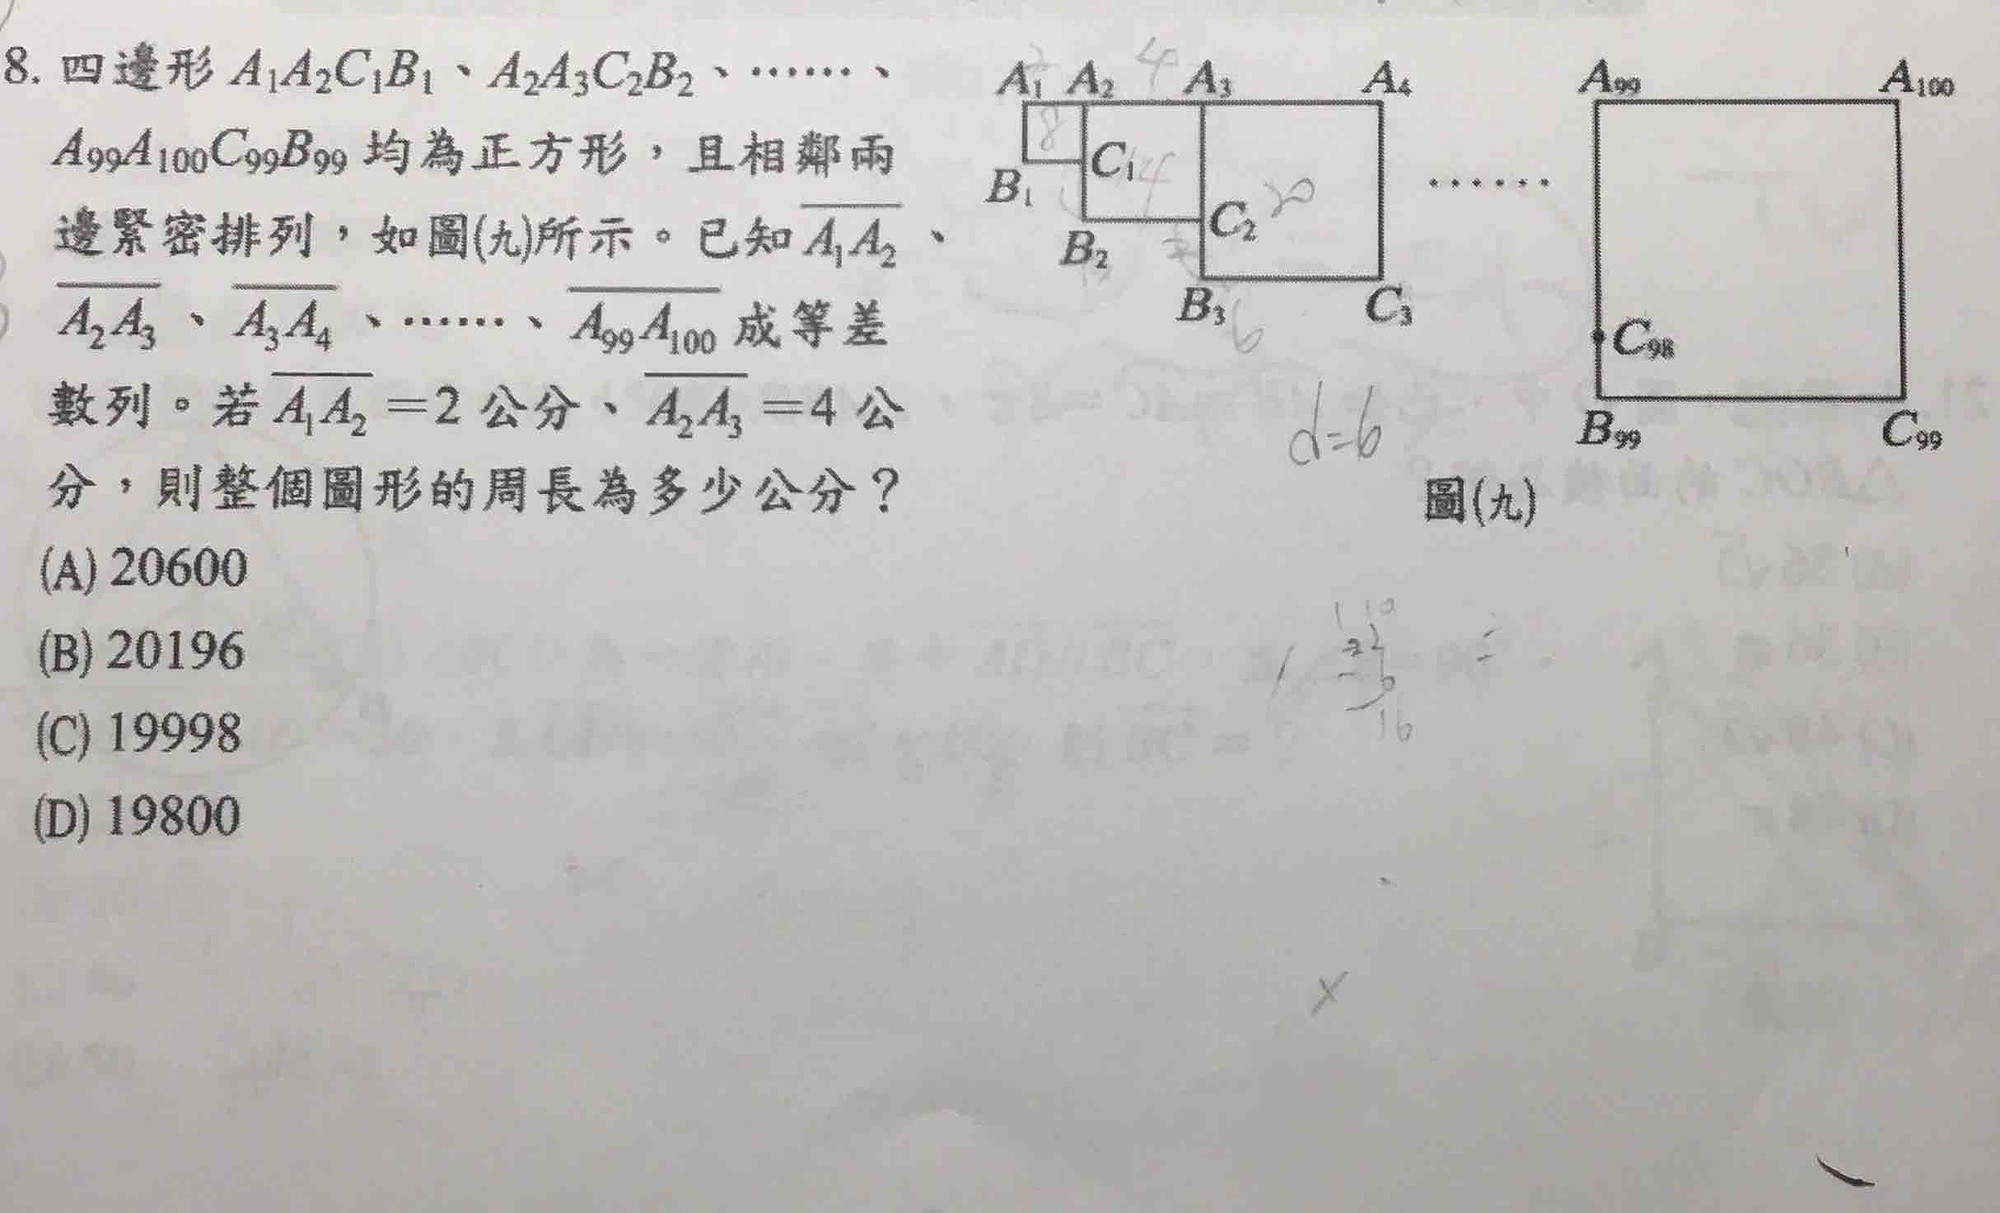 8. 四邊形 A₁A₂C₁B₁、A₂A₃C₂B₂、……、
A₉₉A₁₀₀C₉₉B₉₉ 均為正方形，且相鄰兩
邊緊密排列，如圖(九)所示。已知 A₁A₂、
A₂A₃、A₃A₄、……、A₉₉A₁₀₀ 成等差
數列。若 A₁A₂＝2 公分、A₂A₃＝4 公
分，則整個圖形的周長為多少公分？
(A) 20600
(B) 20196
(C) 19998
(D) 19800
4
A₁ A₂ A₃ A₄ A₉₉ A₁₀₀
8
B₁ C₁ 14 ……
B₂ C₂ 20
B₃ C₃ C₉₈
6
d=6 B₉₉ C₉₉
圖(九)
16
x